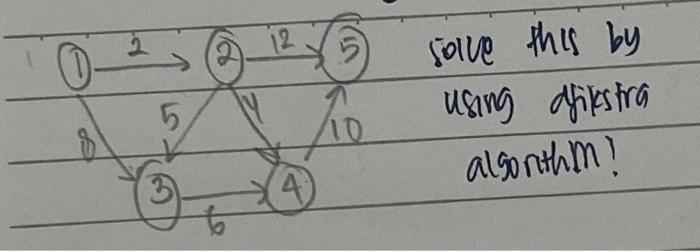 1 2 2 12 5 solve this by
5 4 using djikstra
8 10 algorithm!
3 6 4